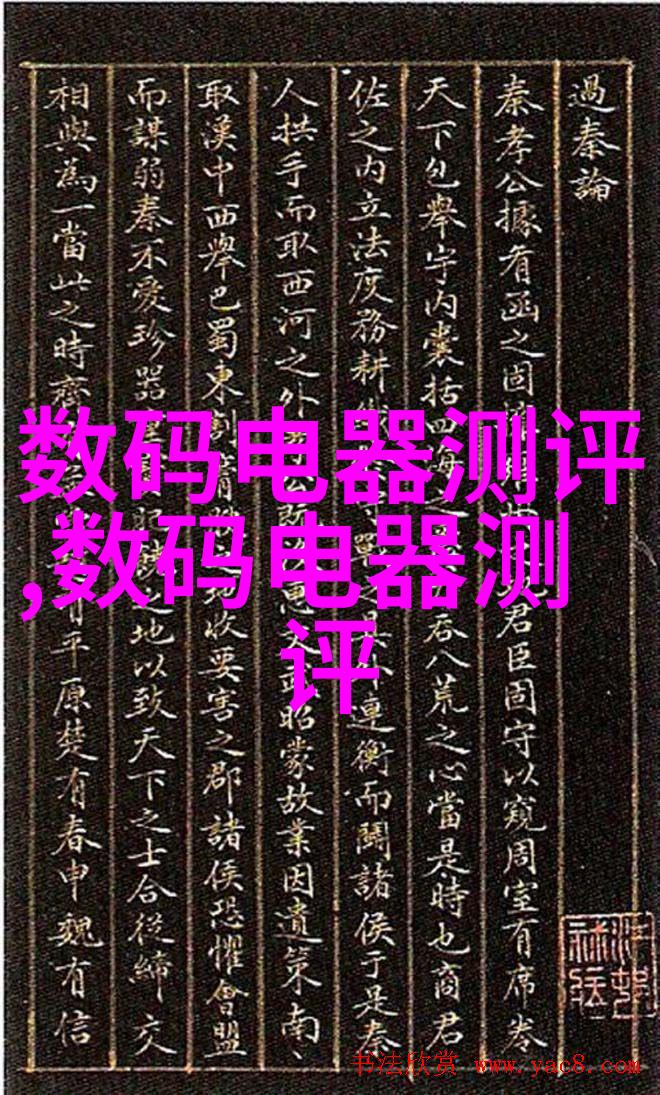 過秦論
秦孝公據有函之固
君臣固守以窺周室有席卷
天下包舉宇内囊括四海之
吞八荒之心當是時也商君
佐之内立法度務耕織
連衡而鬭諸侯于是秦
人拱手而取西河之外
昭蒙故業因遺策南
取漢中西舉巴蜀東割
地收要害之郡諸侯恐懼會盟
而謀弱秦不愛珍器
之地以致天下之士合從締交
相與為一當此之時齊
有平原楚有春申魏有信
数码电器测评
,数码电器测
评
书法欣赏 www.yac8.com